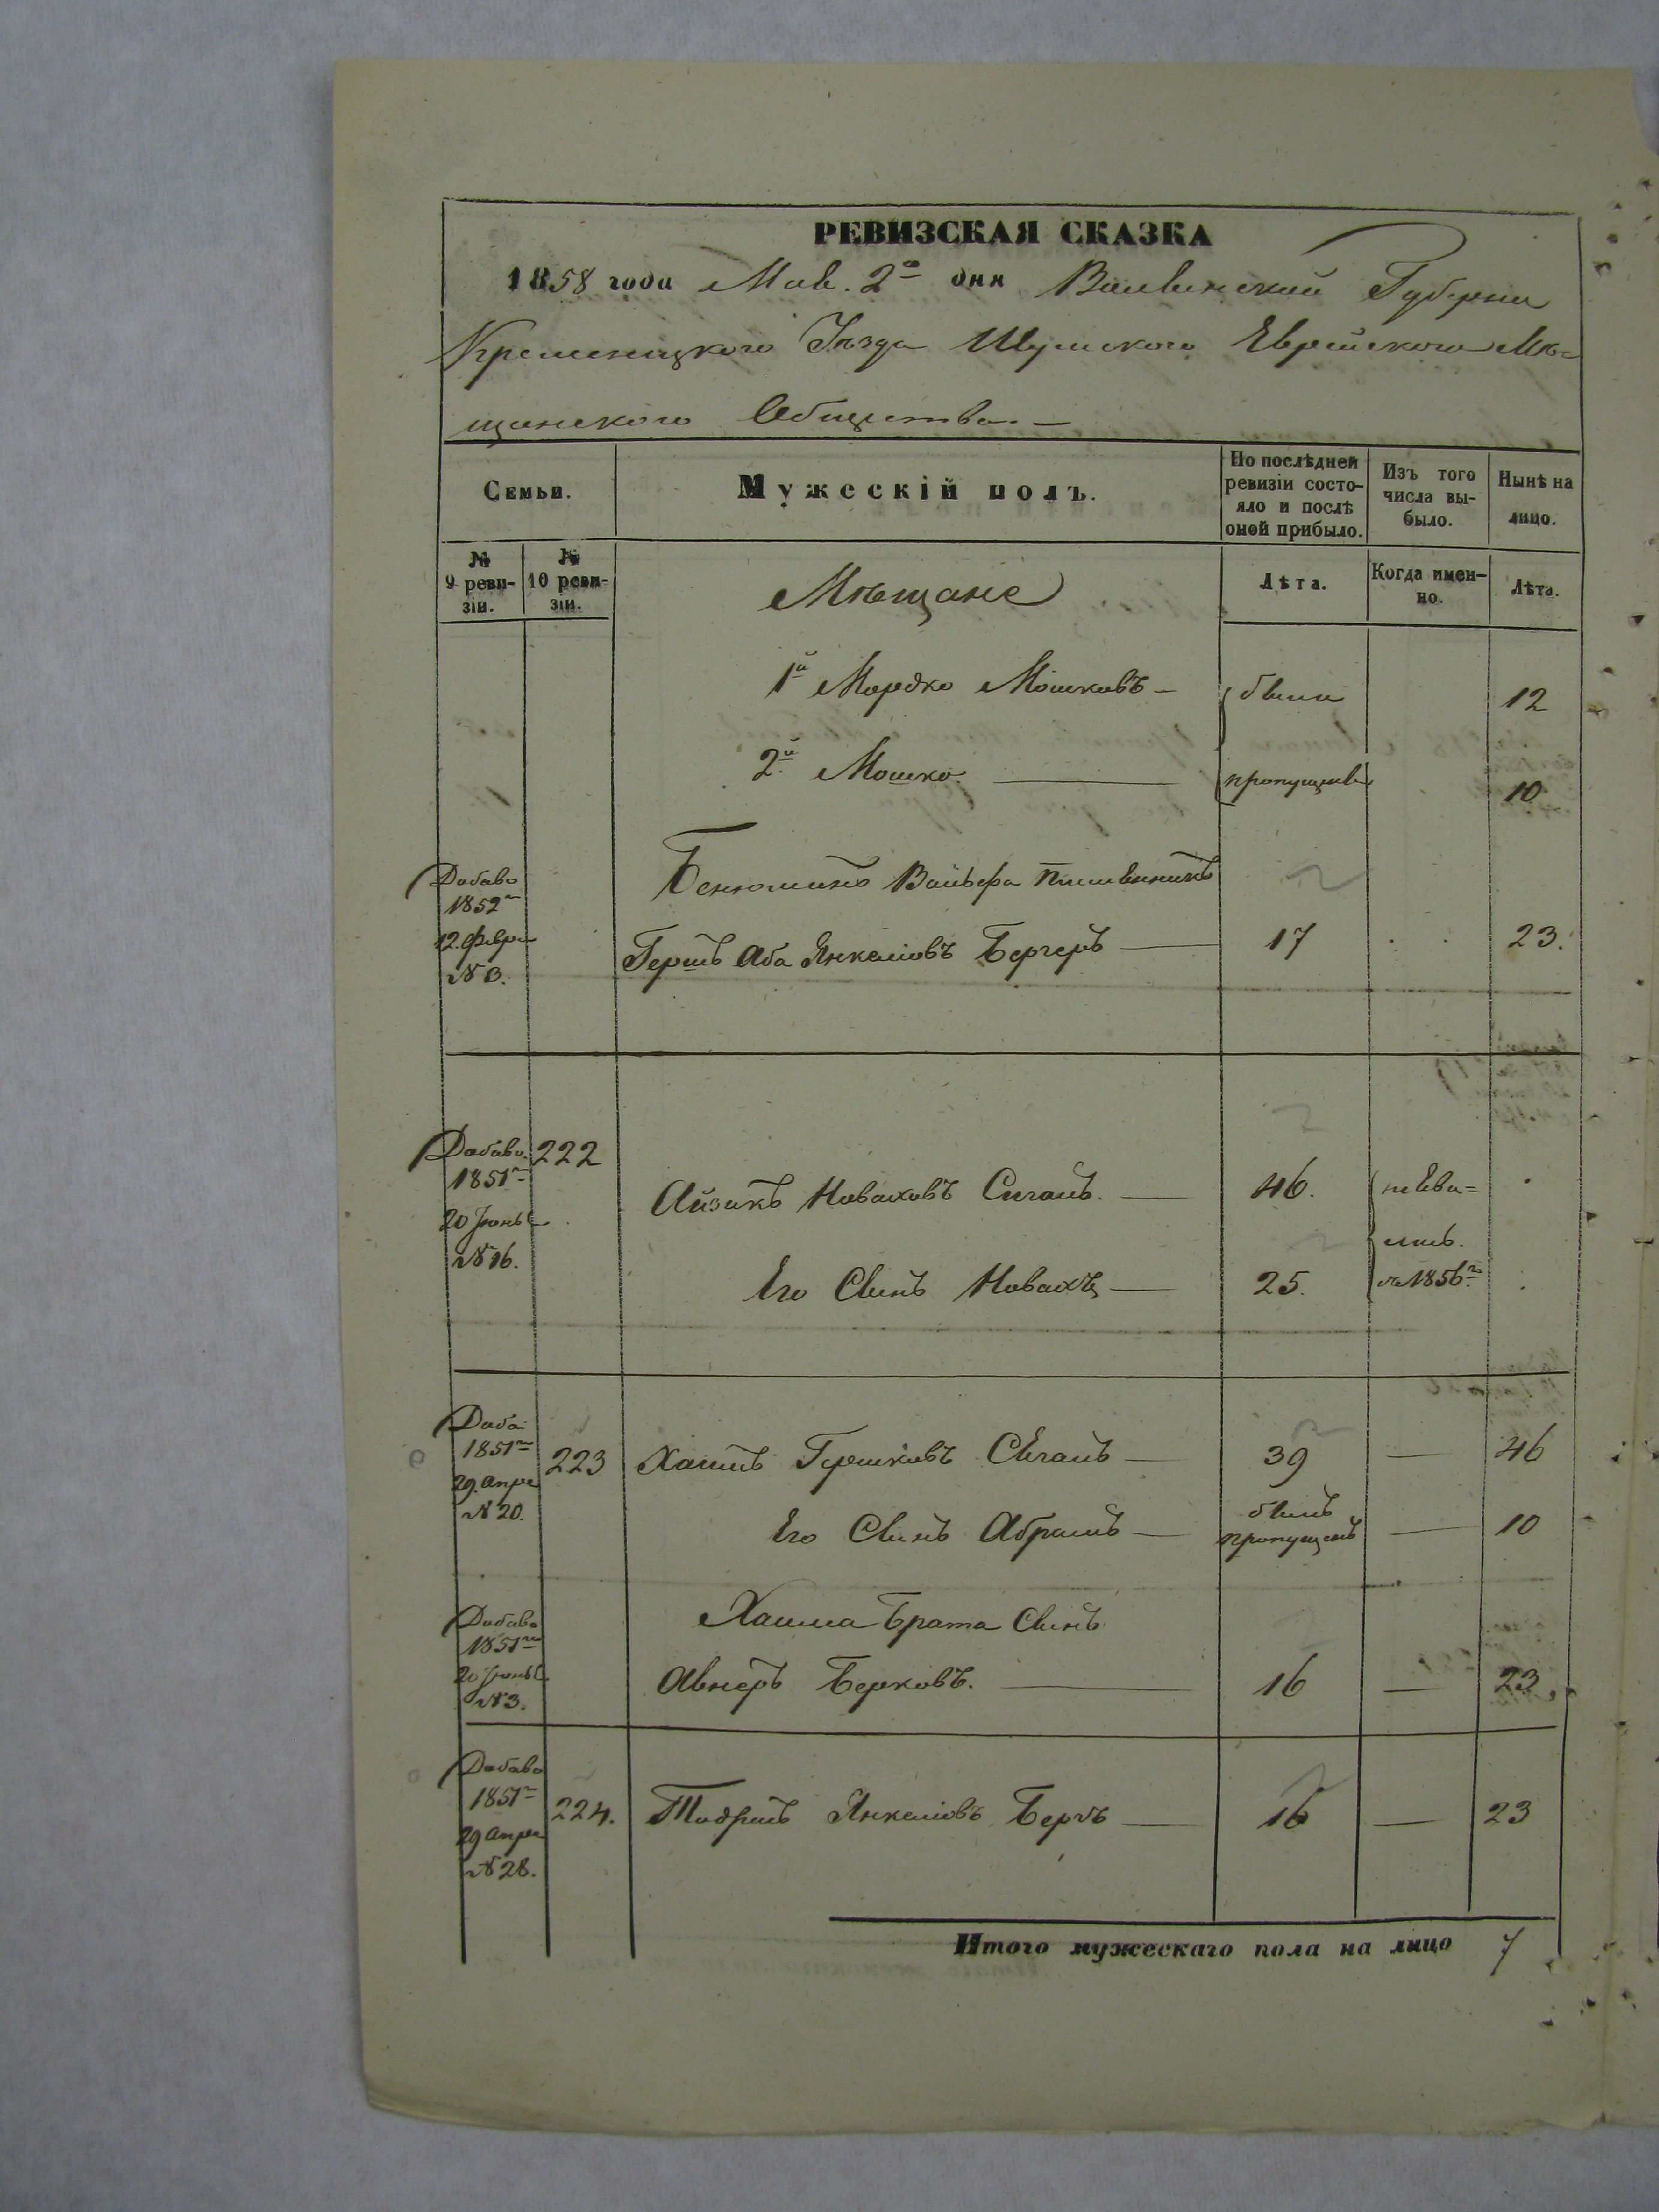 РЕВИЗСКАЯ СКАЗКА
1858 года Мая 2го дня Волынской Губерни
Кременецкого Уѣзда Шумского Еврейского Мѣ=
щанского Общества.—
Семьи.
Мужескій полъ.
По послѣдней ревизіи состо-
яло и послѣ оной прибыло.
Изъ того числа вы-
было.
Нынѣ на лицо.
№ 9 реви-
зіи.
№ 10 реви-
зіи.
Мѣщане
Лѣта.
Когда имен-
но.
Лѣта.
1й Мордко Мошковъ — были 12
2й Мошко — пропущены 10
Добаво 1852го 12 Февра № 3.
Бенюминъ
Гершъ Аба Янкелiовъ Бергеръ — 17 23.
Добаво. 1851го 20 Іюнь № 16. 222
Айзикъ Новаховъ Сигалъ. — 46.
Его Сынъ Новахъ — 25. 1856го
Доба: 1851го 29. Апре № 20. 223
Хаимъ Гершковъ Сигалъ — 39 — 46
Его Сынъ Абрамъ — былъ пропущенъ — 10
Добаво 1851го 20 Іюнь № 3.
Хаима Брата Сынъ
Авнеръ Берковъ. — 16 — 23
Добаво 1851го 29 Апре № 28. 224.
Тодрисъ Янкелiовъ Берчъ — 16 — 23
Итого мужескаго пола на лицо 7